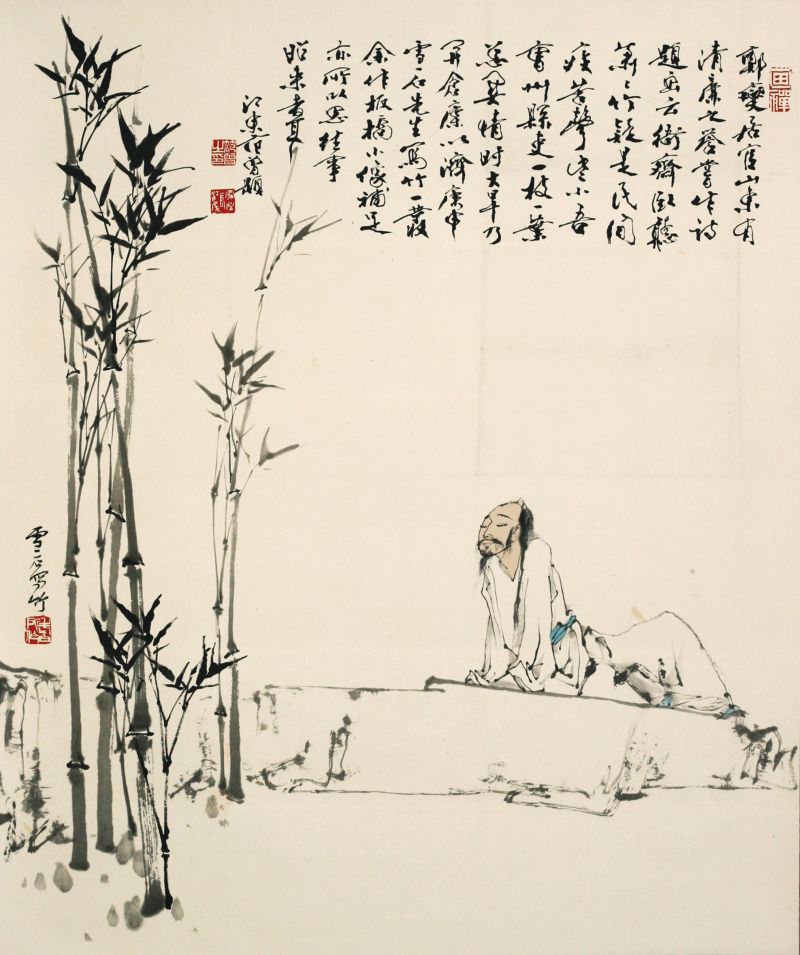 鄭燮居官山東有
清廉之譽嘗作詩
題畫云衙齋臥聽
蕭々竹疑是民間
疾苦聲些小吾
曹州縣吏一枝一葉
總關情時大旱乃
開倉廩以濟
雪石先生寫竹一叢
余作板橋小像補足
亦所以思往事
昭来者
江東范曾題
雪石寫竹